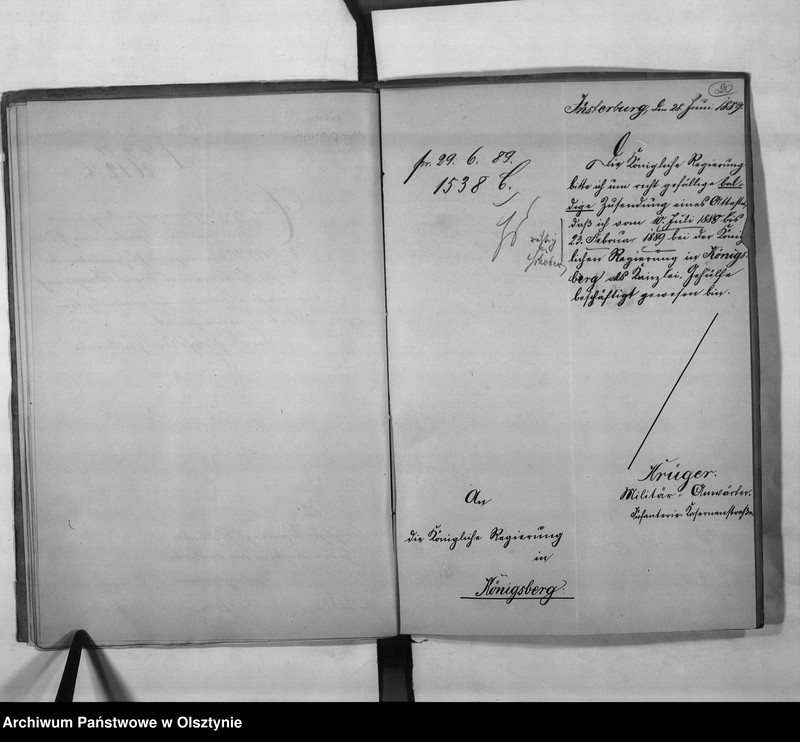 20
Insterburg, den 28. Juni 1889.
pr. 29. 6. 89.
1538 C.
Die Königliche Regierung
bitte ich um recht gefällige bal-
dige Zusendung eines Attestes,
daß ich vom 10. Juli 1888 bis
23. Februar 1889 bei der König
lichen Regierung in Königs-
berg als Kanzlei-Gehülfe
beschäftigt gewesen bin.
Krüger.
Militär-Anwärter.
Infanterie-Kasernenstraße
An
die Königliche Regierung
in
Königsberg.
Archiwum Państwowe w Olsztynie